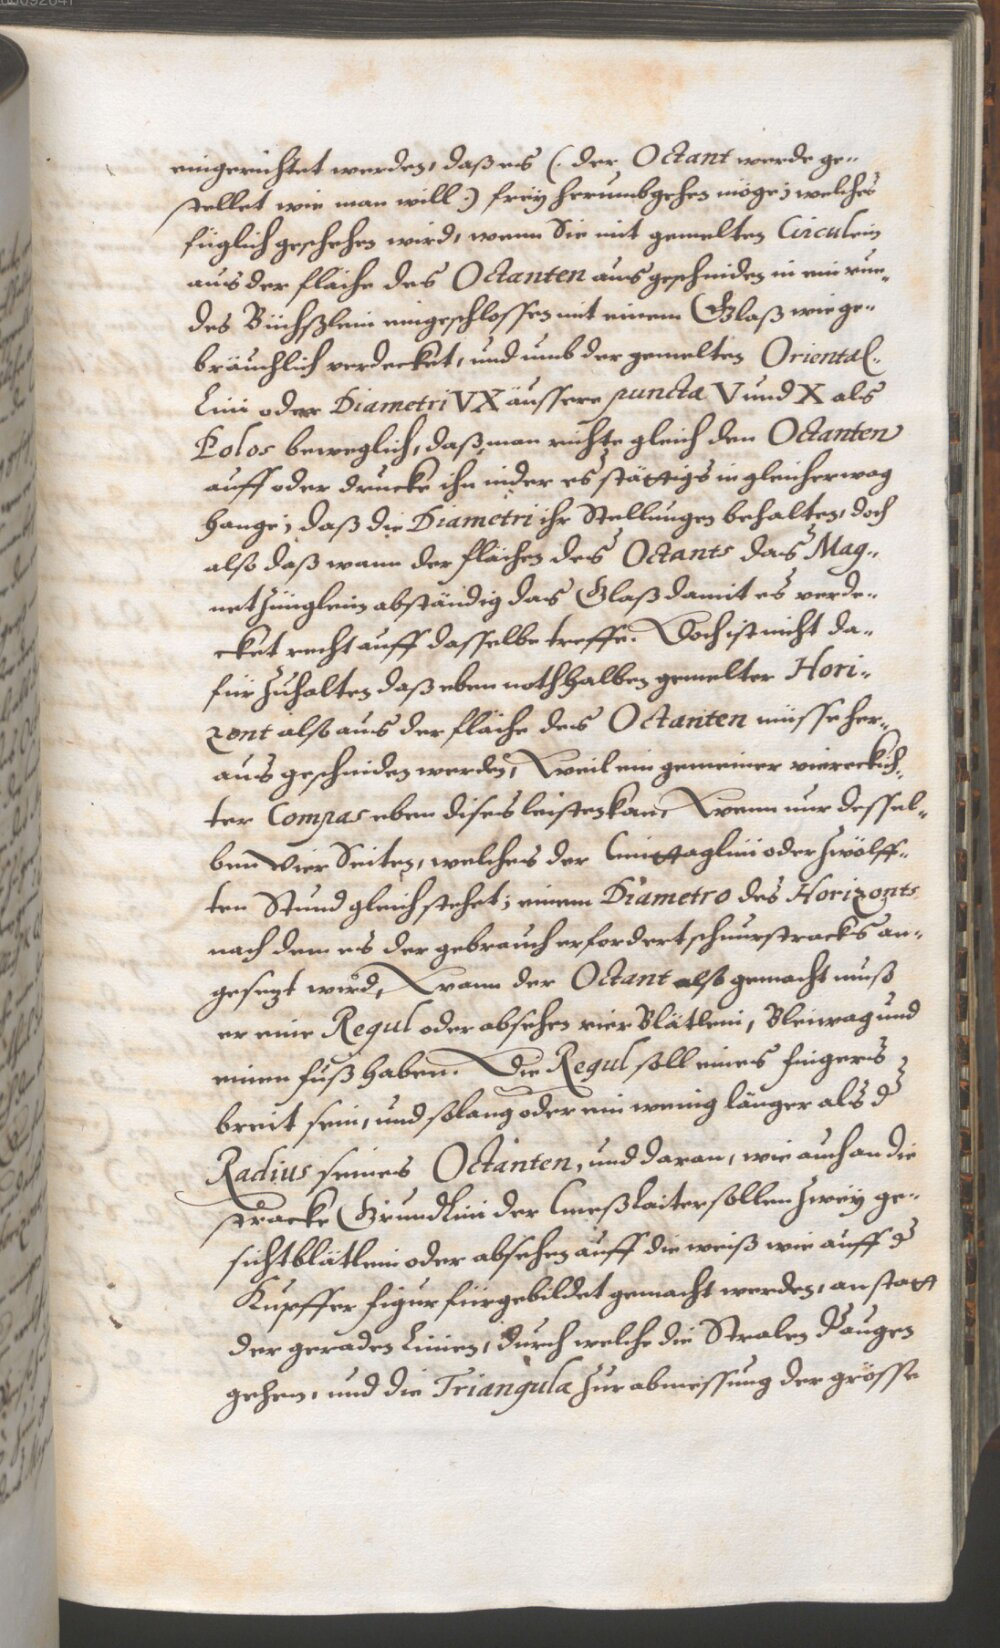 eingerichtet werden, daß es (. der Octant werde ge-
stellet wie man will :) freÿ herumbgehen möge; welches
füglich geschehen wird, wenn Sie mit gemelten Circulein
aus der fläche des Octanten ausgeschniden in ein run-
des Büchsslein eingeschlossen mit einem Glaß wie ge-
bräuchlich verdecket, und umb der gemelten Oriental-
Lini oder Diametri VX äussere puncta V und X als
Polos beweglich, daß man richte gleich den Octanten
auff oder drucke ihn nider es stättigs in gleicher wag
hange; daß die Diametri ihr Stellungen behalten, doch
also daß wann der flächen des Octants das Mag-
netzünglein abständig das Glaß damit es verde-
cket recht auff dasselbe treffe. Doch ist nicht da-
für zuhalten daß eben nothhalben gemelter Hori-
zont also aus der fläche des Octanten müsse her-
aus geschniden werden, weil ein gemeiner viereckich-
ter Compas eben dises leisten kan, wenn nur dessel-
ben Vier Seiten, welches der Mittaglini oder zwölff-
ten Stund gleich stehet; einem Diametro des Horizonts
nach dem es der gebrauch erfordert schnurstracks an-
gesezt wird, Wann der Octant also gemacht muß
er eine Regul oder absehen vier Blätlein, Bleiwag und
einen fuß haben. Die Regul soll eines fingers
breit sein, und so lang oder ein wenig länger als d
Radius seines Octanten, und daran, wie auch an die
stracke Grundlini der Meßlaiter sollen zweÿ ge-
sichtblätlein oder absehen auff die weiß wie auff d
Kupffer figur fürgebildet gemacht werden, an statt
der geraden Linien, durch welche die Stralen d augen
gehen, und die Triangula zur abmessung der grösse